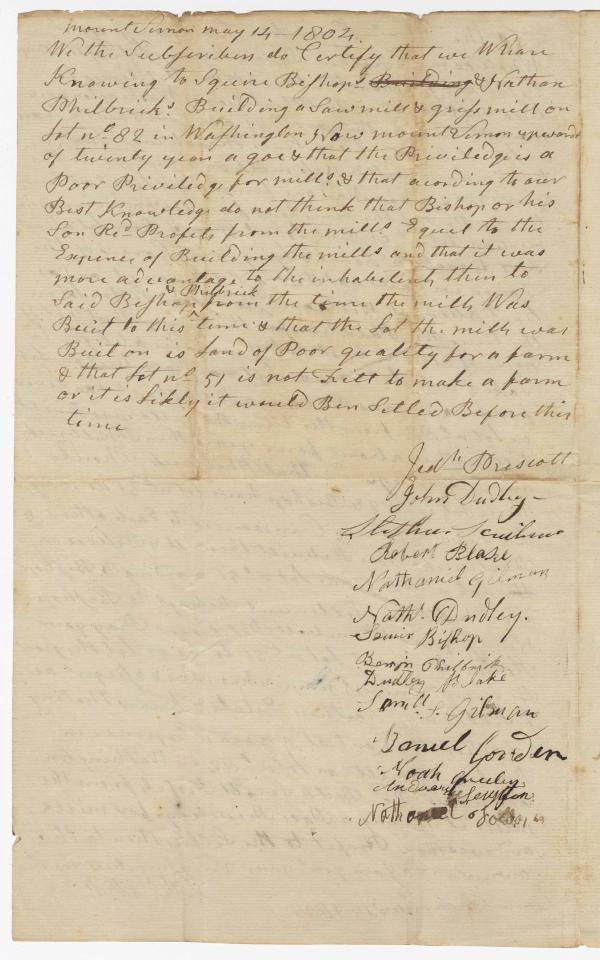 mount Vernon may 14 - 1802.
We the Subscribers do Certify that we Whare
Knowing to Squire Bishops Building & Nathan
Philbricks Building a Saw mill & griss mill on
Lot no 82 in Washington Now mount Vernon upwards
of twenty years a goe & that the Priviledge is a
Poor Priviledge for mills & that acording to our
Best Knowledge do not think that Bishop or his
Son Red Profets from the mills Equel to the
Expence of Building the mills and that it was
more advantage to the inhabetents then to
Said Bishop & Philbrick from the time the mills Was
Built to this time & that the Lot the mills was
Built on is Land of Poor quality for a farm
& that Lot no 51 is not Fitt to make a farm
or it is Likly it would Ben Setled Before this
time
Jedh Prescott
John Dudley
Scribner
Robert Blake
Nathaniel Gilman
Nathl Dudley.
Squir Bishop
Benjn Philbrick
Dudley Blake
Samll Gilman
Daniel Gorden
Noah Greeley
Nathaniel